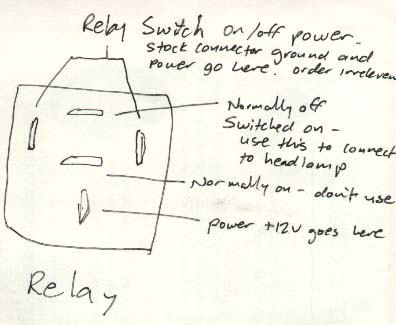 Relay Switch on/off power.
Stock connector ground and
power go here. order irreleven
Normally off
Switched on -
use this to connect
to headlamp
Normally on - don't use
power +12V goes here
Relay